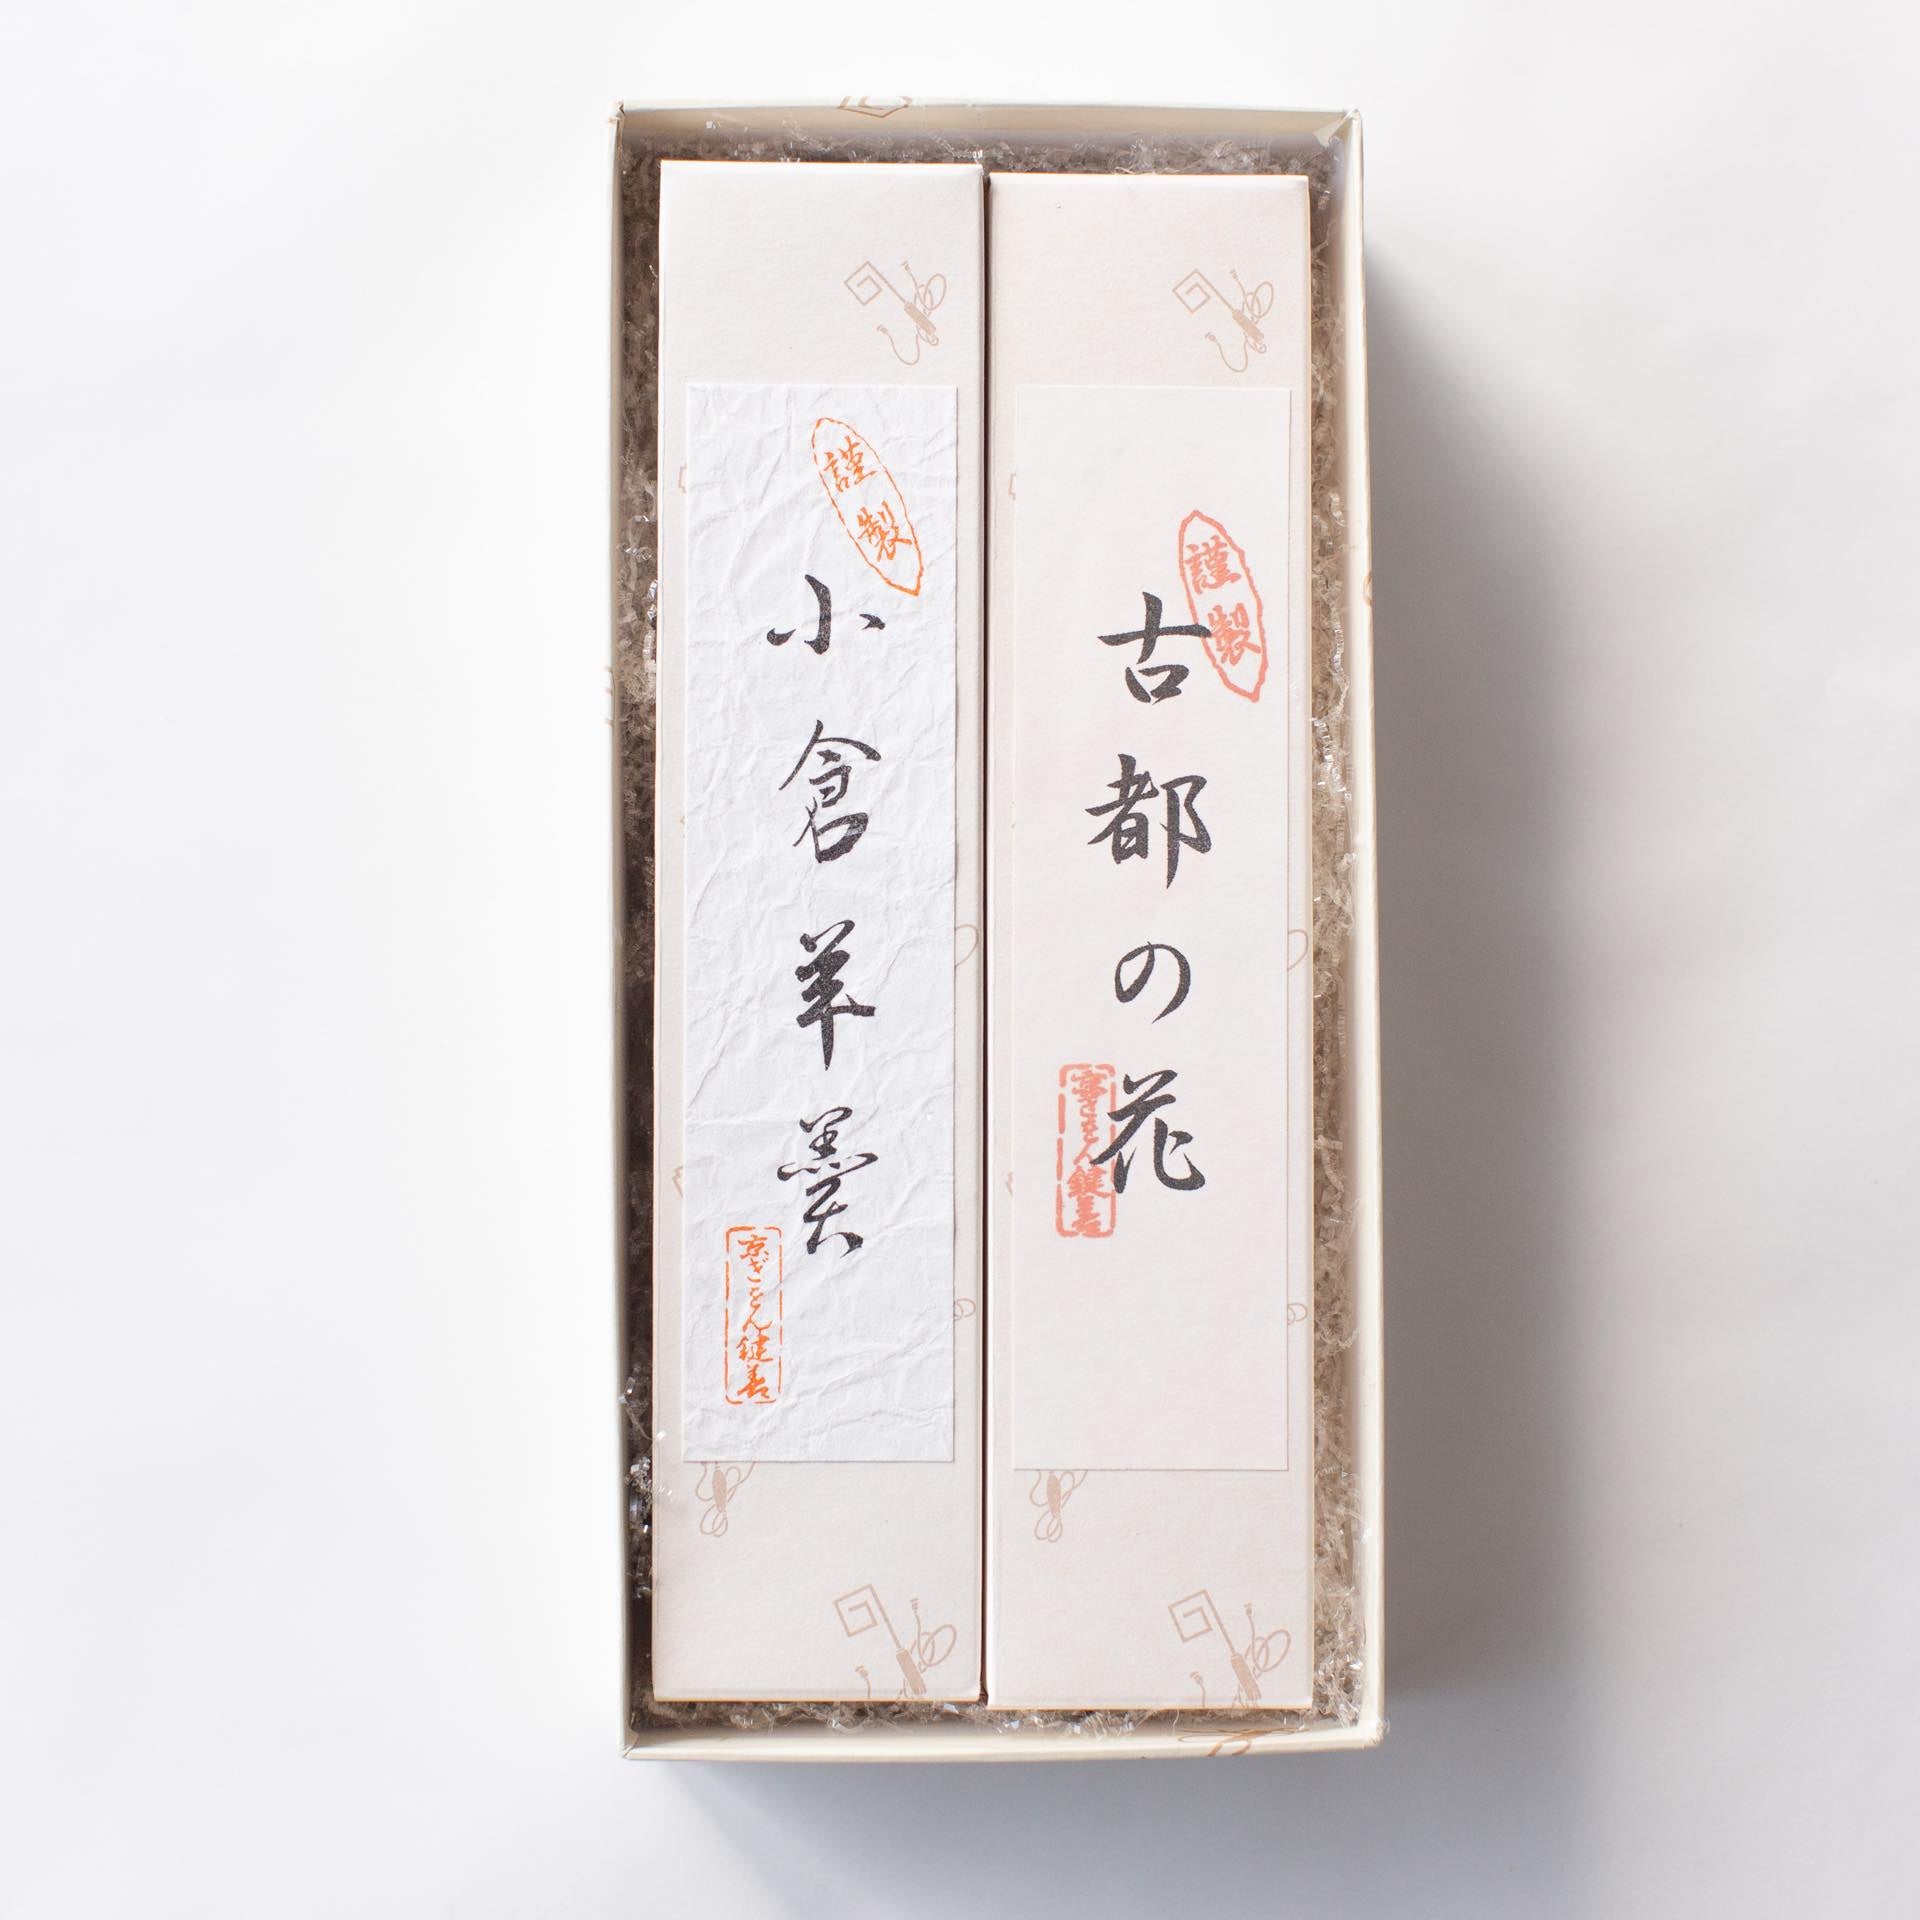 謹製
古都の花
京ぎをん鍵善
謹製
小倉羊羹
京ぎをん鍵善